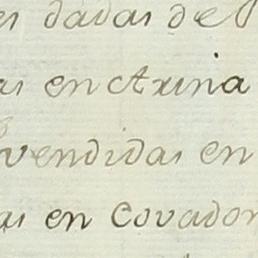 es dadas de
as en Arina
vendidas en
as en Covadon